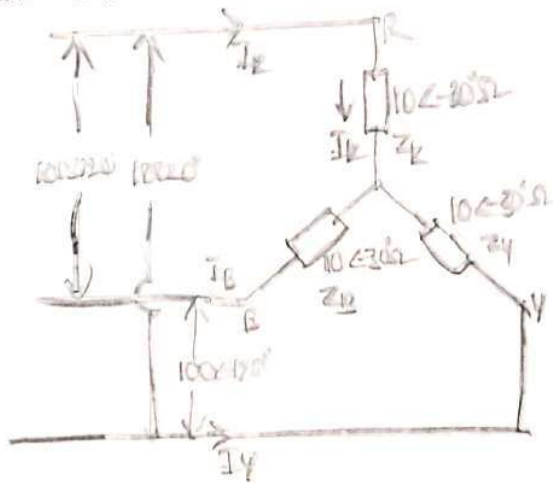 R
I_R
10<-30°Ω
I_R Z_R
100<120° 100<0°
10<-30°Ω
Z_Y
10<-30°Ω
I_B
B
Y
100<-120°
I_Y